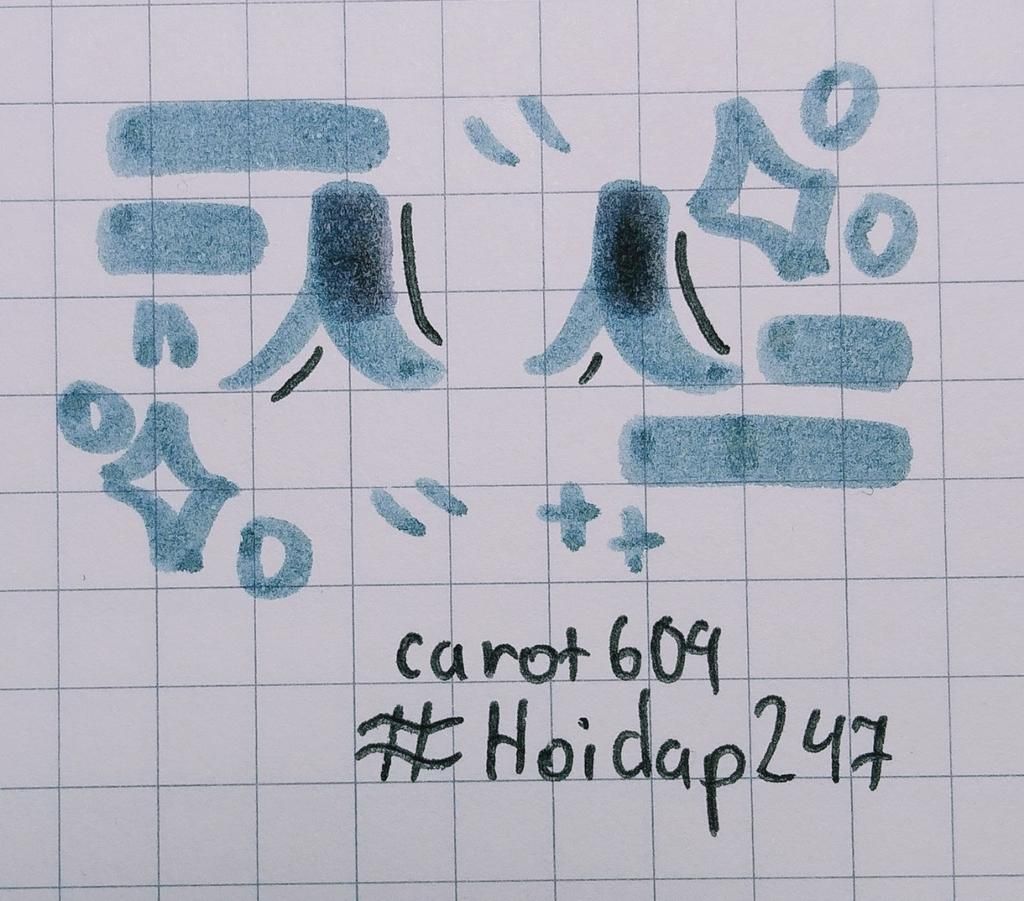 carot609
#Hoidap247